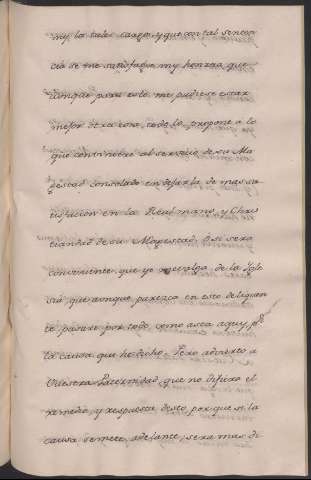 my los tales cargos, y que con tal senten
cia se me satisfaga my honrra que
aunque para esto me pudiese estar
mejor otra cosa, todo lo propone a lo
que conviniere al servicio de su Ma
gestad consolado en dejarla de mas sa
tisfacion en la Real mano, y Chris
tiandad de su Magestad, O si sera
conveniente que yo me valga de la Igle
sia, que aunque parezca en esto delinquen
te pasare por todo como asta aqui, pr.
la causa que he dicho. Pero advierto a
Vuestra Paternidad que no difiera el
remedio, y respuesta desto, porque si la
causa se mete adelante, sera mas di